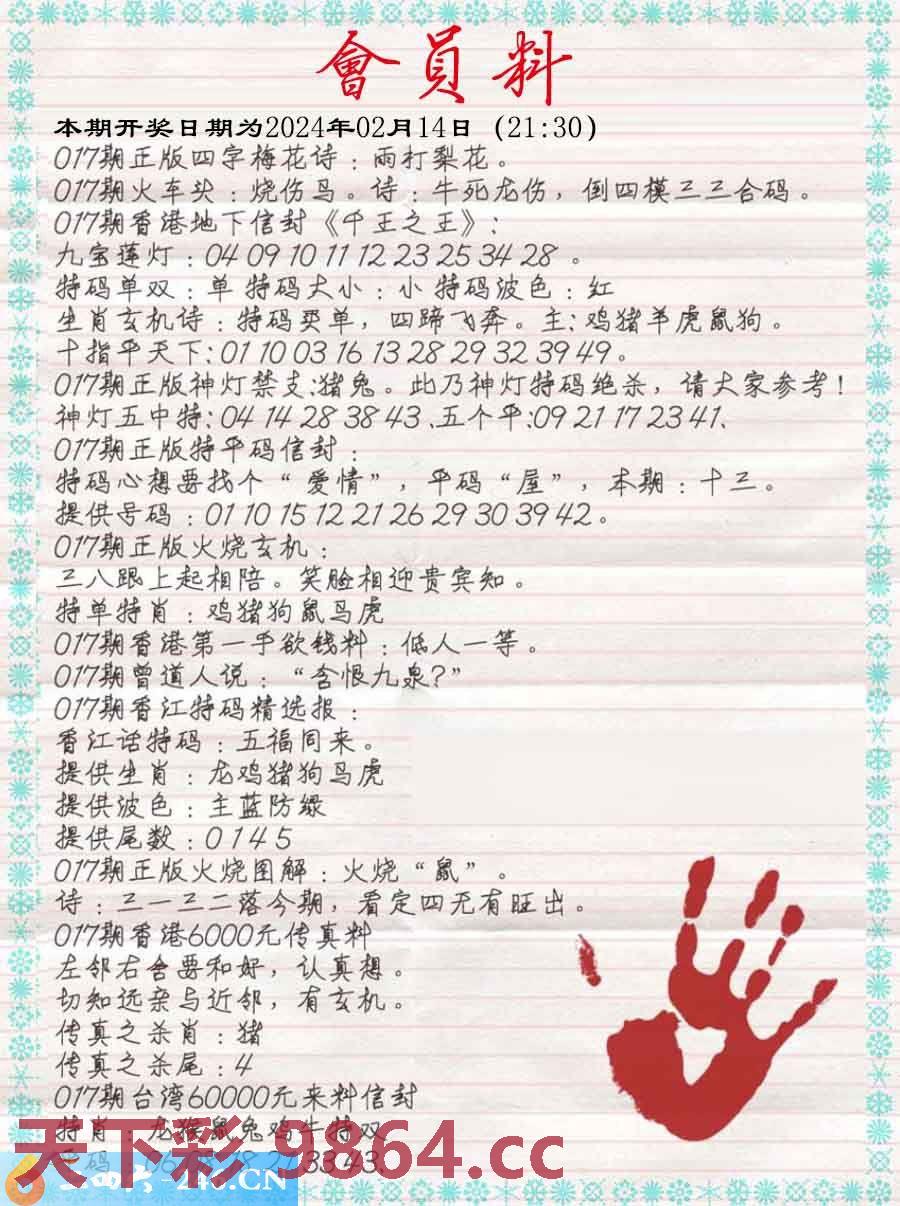 會員料
本期开奖日期为2024年02月14日（21:30）
017期正版四字梅花诗：雨打梨花。
017期火车头：烧伤鸟。诗：牛死龙伤，倒四模三三合码。
017期香港地下信封《千王之王》：
九宝莲灯：04 09 10 11 12 23 25 34 28 。
特码单双：单 特码大小：小 特码波色：红
生肖玄机诗：特码买单，四蹄飞奔。主：鸡猪羊虎鼠狗。
十指平天下：01 10 03 16 13 28 29 32 39 49。
017期正版神灯禁支：猪兔。此乃神灯特码绝杀，请大家参考！
神灯五中特：04 14 28 38 43、五个平：09 21 17 23 41、
017期正版特平码信封：
特码心想要找个“爱情”，平码“屋”，本期：十三。
提供号码：01 10 15 12 21 26 29 30 39 42。
017期正版火烧玄机：
三八跟上起相陪。笑脸相迎贵宾知。
特单特肖：鸡猪狗鼠马虎
017期香港第一手欲钱料：低人一等。
017期曾道人说：“含恨九泉？”
017期香江特码精选报：
香江话特码：五福同来。
提供生肖：龙鸡猪狗马虎
提供波色：主蓝防绿
提供尾数：0 1 4 5
017期正版火烧图解：火烧“鼠”。
诗：三一三二落今期，看定四无有旺出。
017期香港6000元传真料
左邻右舍要和好，认真想。
切知远亲与近邻，有玄机。
传真之杀肖：猪
传真之杀尾：4
017期台湾60000元来料信封
特肖：龙猴鼠兔鸡牛特双
21 33 43、
天下彩 9864.cc
-246.CN